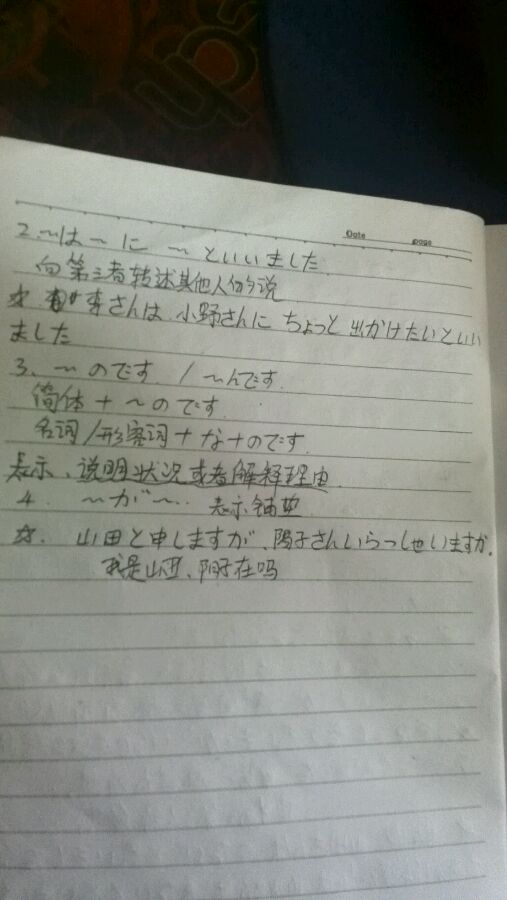 Date page
2. ~は ~ に ~ といいました
向第三者转述其他人的说
☆ 李さんは 小野さんに ちょっと 出かけたいといい
ました
3. ~ のです / ~んです.
简体 + ~のです
名词/形容词 + な + のです
表示、说明状况或者解释理由
4. ~が~.. 表示铺垫
☆. 山田と申しますが、陽子さんいらっしゃいますか.
我是山田、阳子在吗